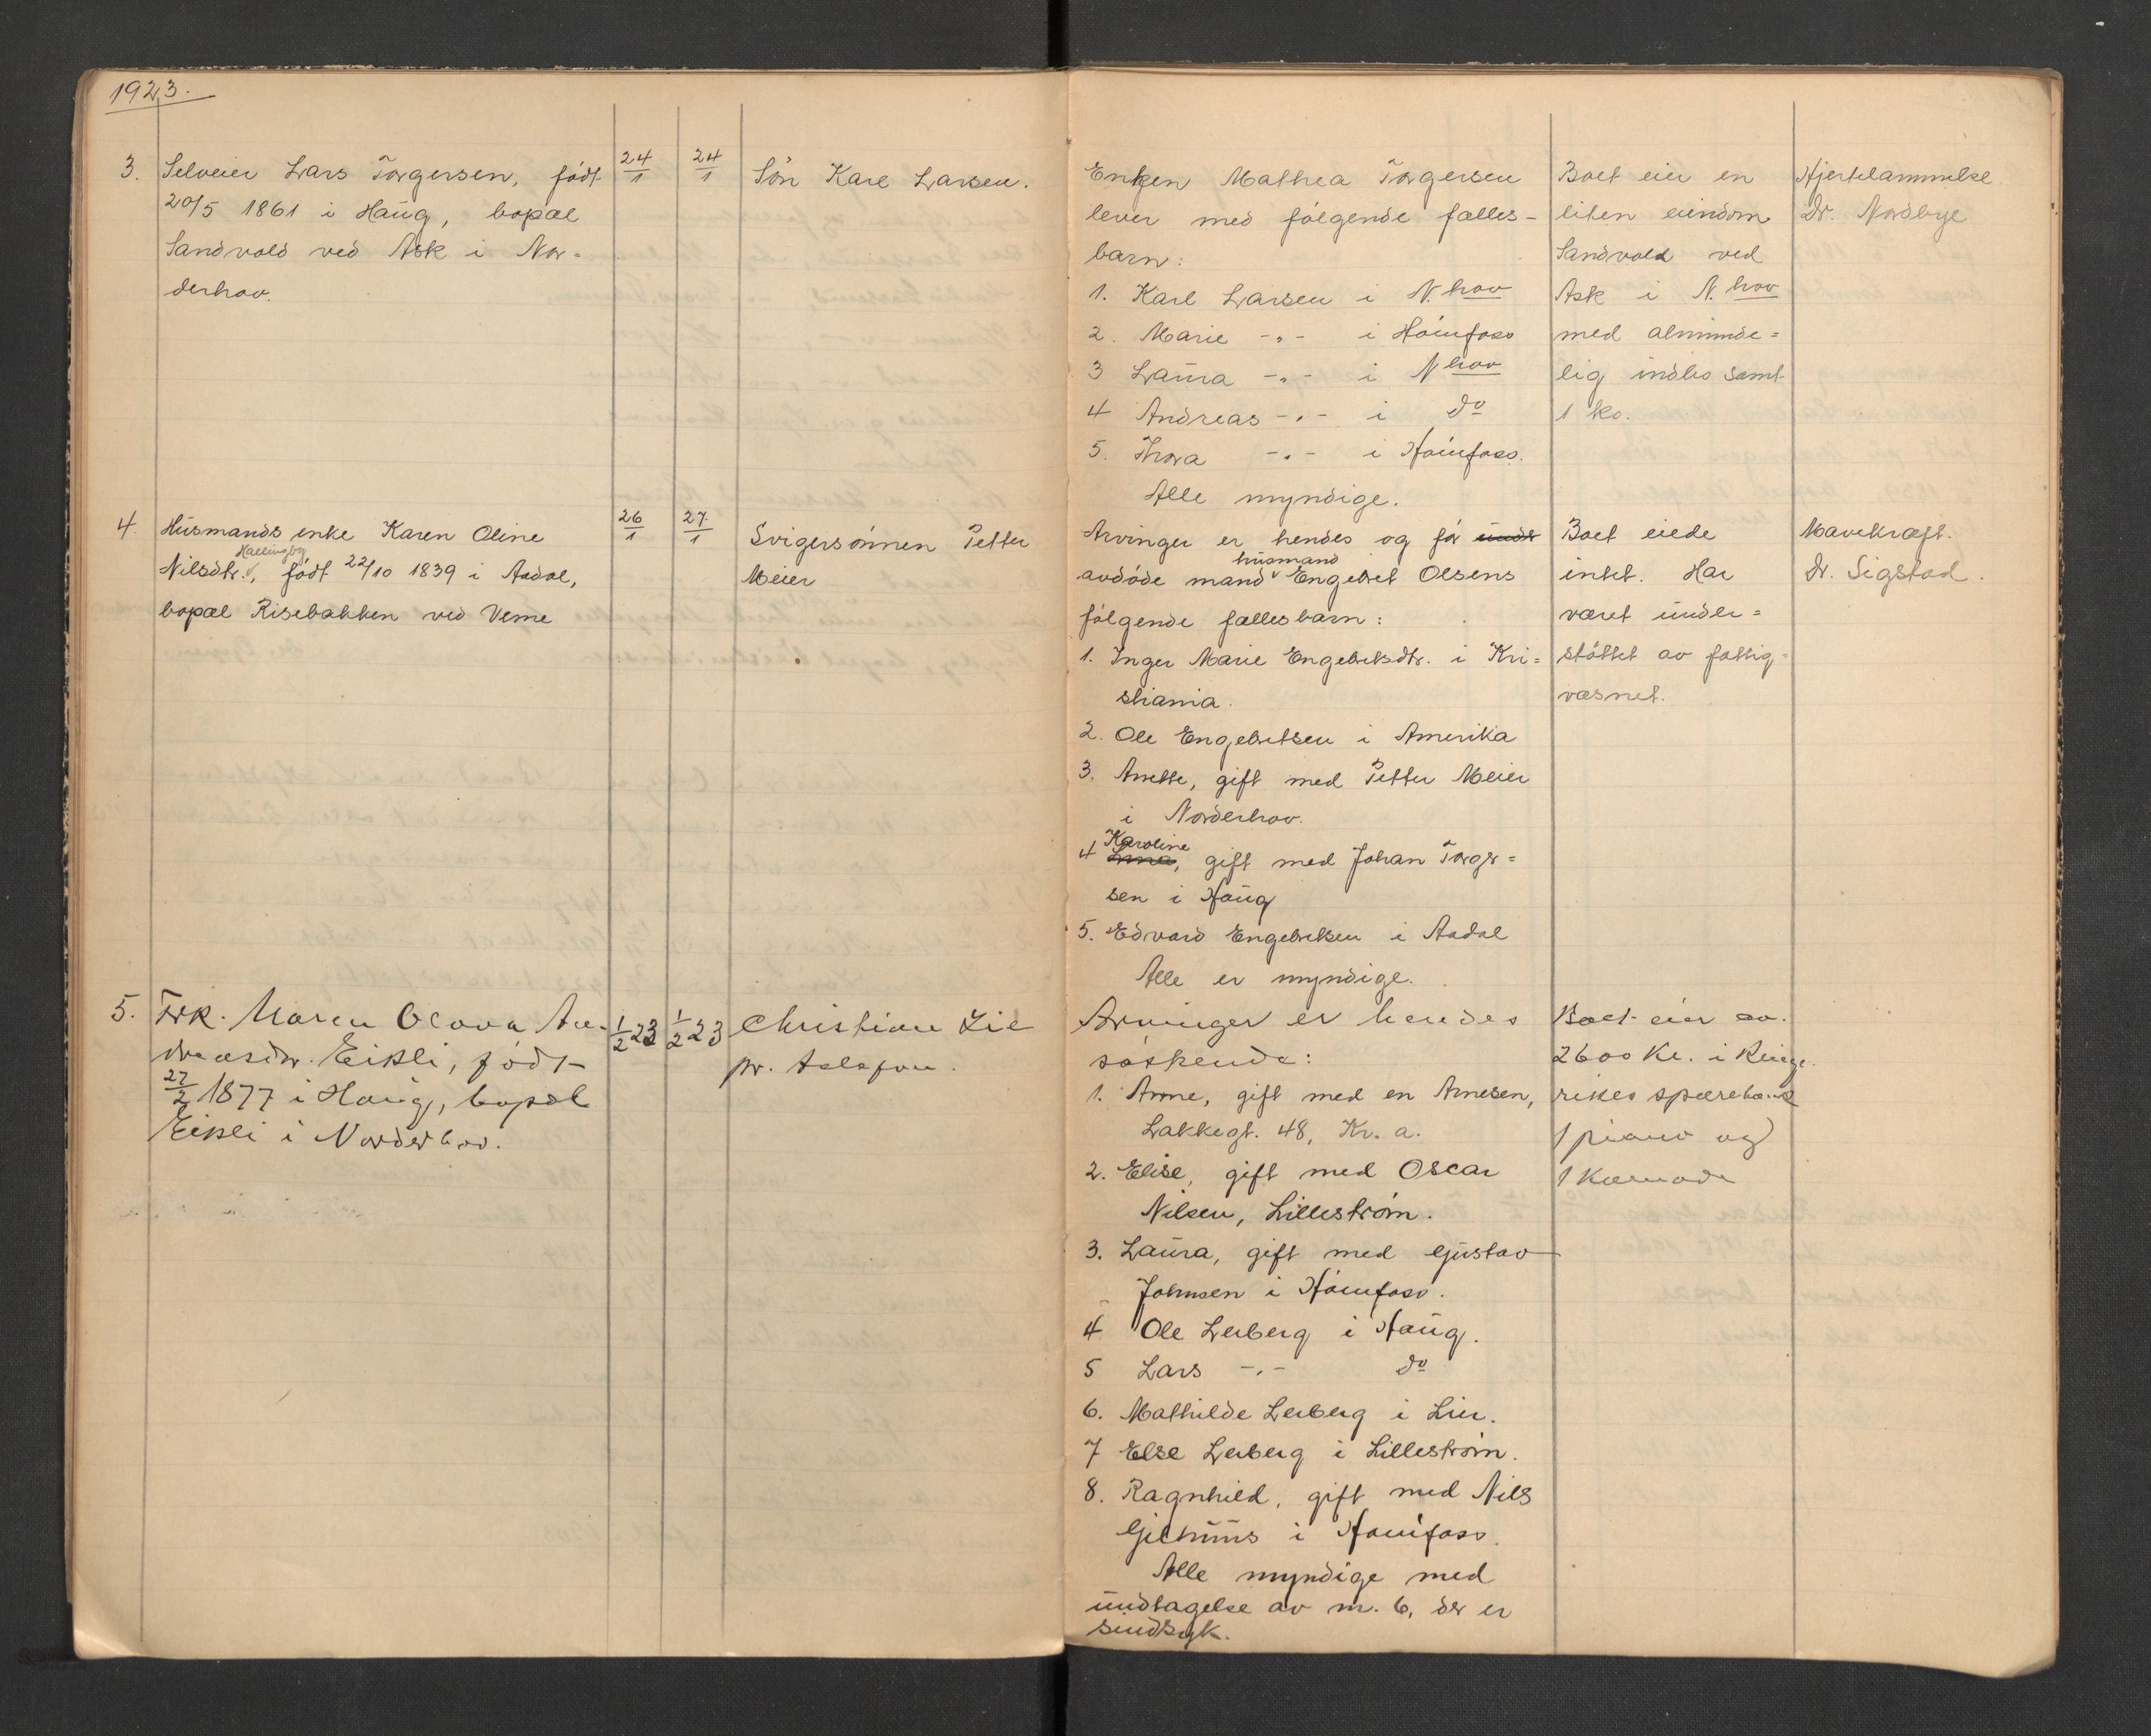 1923.
3.
Selveier Lars Torgersen, født
20/5 1861 i Haug, bopæl
Sandvold ved Ask i Nor-
derhov.
24/1
24/1
Søn Karl Larsen.
Enken Mathea Torgersen
lever med følgende fælles-
barn:
1. Karl Larsen i N.hov
2. Marie -"- i Hønefoss
3 Laura -"- i Nhov
4 Andreas -"- i do
5. Thora -"- i Hønefoss.
Alle myndige.
Boet eier en
liten eiendom
Sandvold ved
Ask i N.hov
med alminde-
lig indbo samt
1 ko.
Hjertelammelse
Dr. Nordbye
4.
Husmands enke Karen Oline
Hallingby
Nilsdtr., født 22/10 1839 i Aadal,
bopæl Risebakken ved Veme
26/1
27./1
Svigersønnen Petter
Meier
Arvinger er hendes og før
husmand
avdøde mand Engebret Olsens
følgende fællesbarn:
1. Inger Marie Engebretsdtr. i Kri-
stiania.
2. Ole Engebretsen i Amerika
3. Anette, gift med Petter Meier
i Norderhov.
Karoline
4 Anna, gift med Johan Torger-
sen i Haug
5. Edvard Engebretsen i Aadal
Alle er myndige.
Boet eiede
intet. Har
været under-
støttet av fattig-
væsnet.
Mavekræft.
Dr. Sigstad.
5.
Frk. Maren Olova An-
dreasdtr. Eikli, født
27/2 1877 i Haug, bopæl
Eikli i Norderhov.
1/2 23
1/2 23
Christian Lie
pr. telefon.
Arvinger er hendes
søskende:
1. Anne, gift med en Arnesen,
Lakkegt. 48, Kr. a.
2. Elise, gift med Oscar
Nilsen, Lillestrøm.
3. Laura, gift med Gustav
Johnsen i Hønefoss.
4 Ole Lerberg i Haug.
5 Lars -"- do
6. Mathilde Lerberg i Lier.
7 Else Lerberg i Lillestrøm.
8. Ragnhild, gift med Nils
Gjelhuus i Hønefoss.
Alle myndige med
undtagelse av nr. 6, der er
sindsyk.
Boet eier ca.
2600 Kr. i Ringe-
rikes sparebank
1 piano og
1 komode